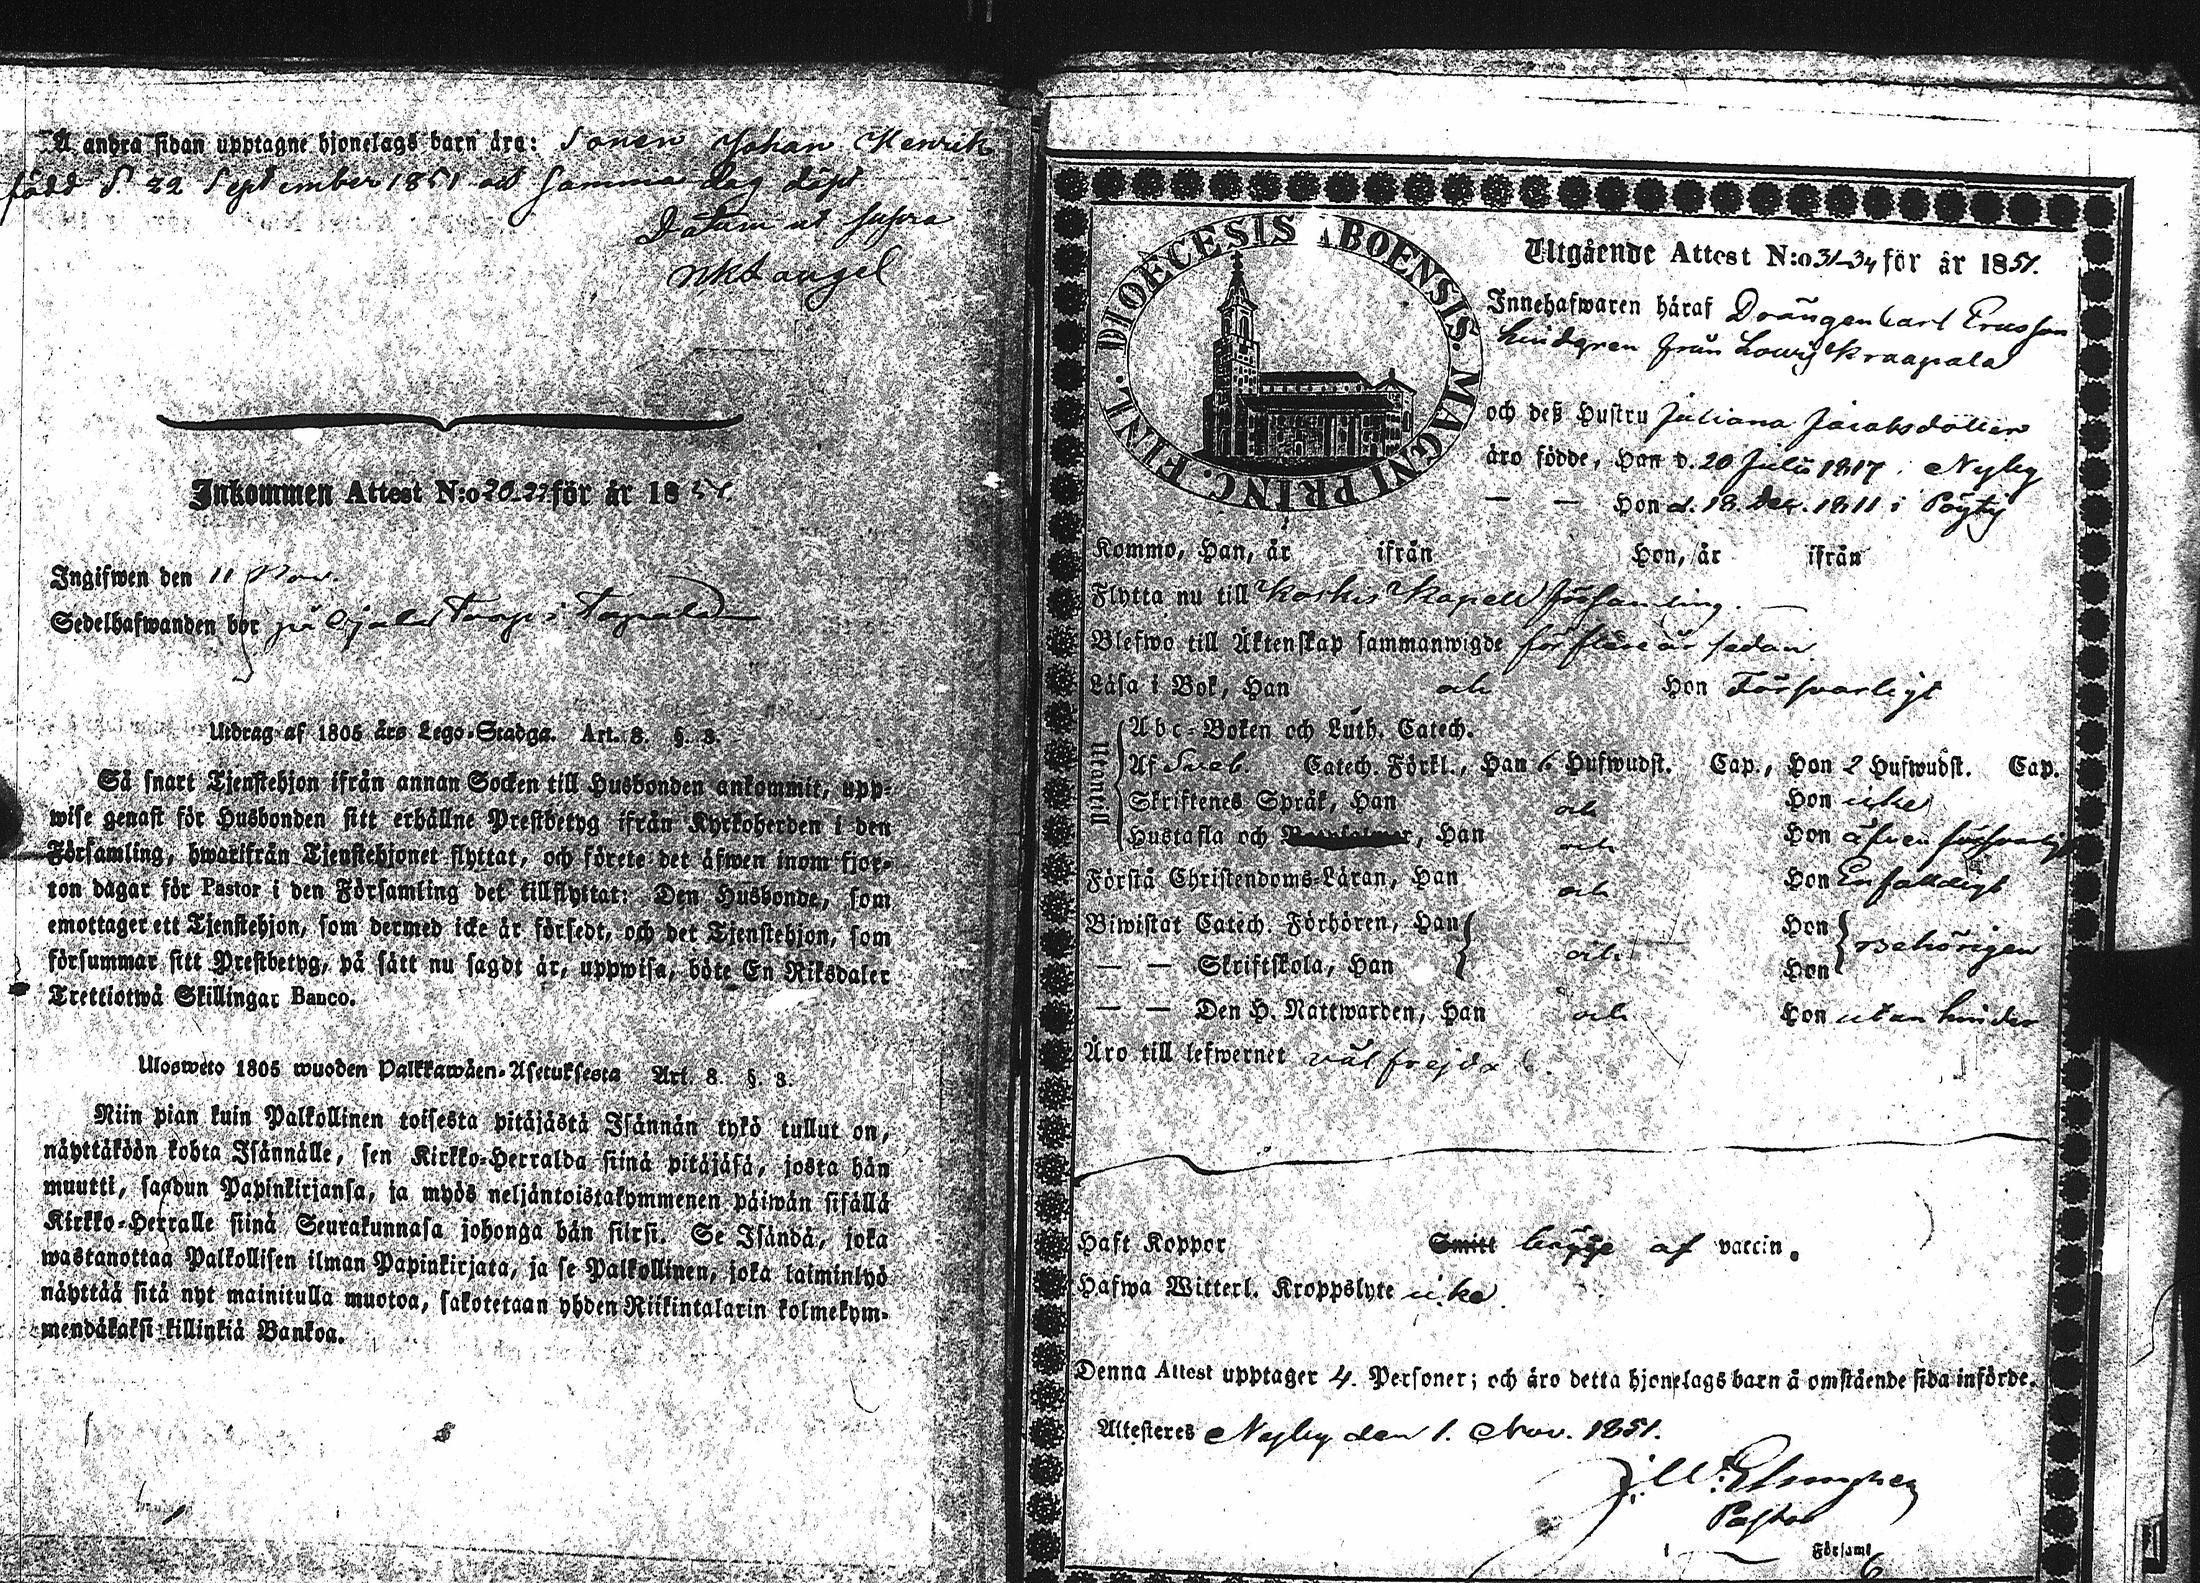 Å andra sidan upptagne hjonelags barn äro: Sonen Johan Henrik
född d. 22 September 1851 och samma dag döpt
Datum ut supra
Inkommen Attest N:o 20-22 för år 1851.
Ingifwen den 11 Nov.
Sedelhafwanden bor på torp i
Utdrag af 1805 års Lego-Stadga. Art. 8. §. 3.
Så snart Tjenstehjon ifrån annan Socken till Husbonden ankommit, upp-
wise genast för Husbonden sitt erhållne Prestbetyg ifrån Kyrkoherden i den
Församling, hwarifrån Tjenstehjonet flyttat, och förete det äfwen inom fjor-
ton dagar för Pastor i den Församling det tillflyttat: Den Husbonde, som
emottager ett Tjenstehjon, som dermed icke är försedt, och det Tjenstehjon, som
försummar sitt Prestbetyg, på sätt nu sagdt är, uppwisa, böte En Riksdaler
Trettiotwå Skillingar Banco.
Ulosweto 1805 wuoden Palkkawäen-Asetuksesta Art. 8. §. 3.
Niin pian kuin Palkollinen toisesta pitäjästä Isännän tykö tullut on,
näyttäköön kohta Isännälle, sen Kirkko-Herralda siinä pitäjäsä, josta hän
muutti, saadun Papinkirjansa, ja myös neljäntoistakymmenen päiwän sisällä
Kirkko-Herralle siinä Seurakunnasa johonga hän siirsi. Se Isändä, joka
wastanottaa Palkollisen ilman Papinkirjata, ja se Palkollinen, joka laiminlyö
näyttää sitä nyt mainitulla muotoa, sakotetaan yhden Riikintalarin kolmekym-
mendäkaksi killinkiä Bankoa.
DIOECESIS ABOENSIS. MAGNI PRINC. FINL.
Utgående Attest N:o 31-34 för år 1851.
Innehafwaren häraf Drängen Carl Ersson
Lindgren från
och deß Hustru Juliana Jacobsdotter
äro födde, Han d. 20 Julii 1817 i Nyby
— — Hon d. 18. Dec. 1811 i Pöyty
Kommo, Han, år ifrån Hon, år ifrån
Flytta nu till Koskis Kapell församling. —
Blefwo till Äktenskap sammanwigde för flere år sedan.
Läsa i Bok, Han och Hon Försvarligt
Utantill
Abc-Boken och Luth. Catech.
Af Sveb. Catech. Förkl., Han 6 Hufwudst. Cap., Hon 2 Hufwudst. Cap.
Skriftenes Språk, Han och Hon icke
Hustafla och , Han och Hon äfven försvarligt
Förstå Christendoms-Läran, Han och Hon Enfaldigt
Biwistat Catech. Förhören, Han och Hon behörigen
— — Skriftskola, Han Hon
— — Den H. Nattwarden, Han och Hon utan hinder
Äro till lefwernet välfrejdade.
Haft Koppor Smitt begge af vaccin.
Hafwa Witterl. Kroppslyte icke.
Denna Attest upptager 4. Personer; och äro detta hjonelags barn å omstående sida införde.
Attesteres Nyby den 1. Nov. 1851.
Pastor
i Församl